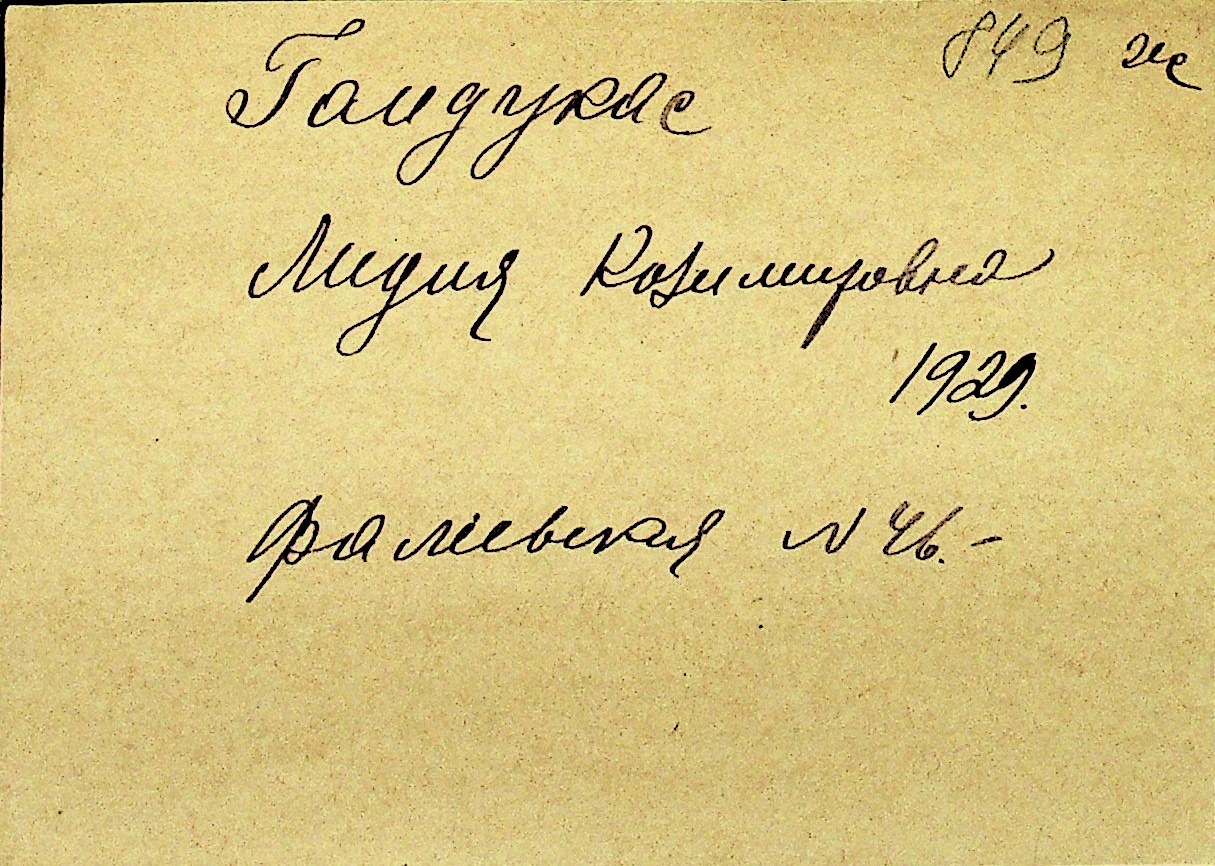 849 ж
Гаидукас
Лидия Козимировна
1929.
Фалиевская N 46.-